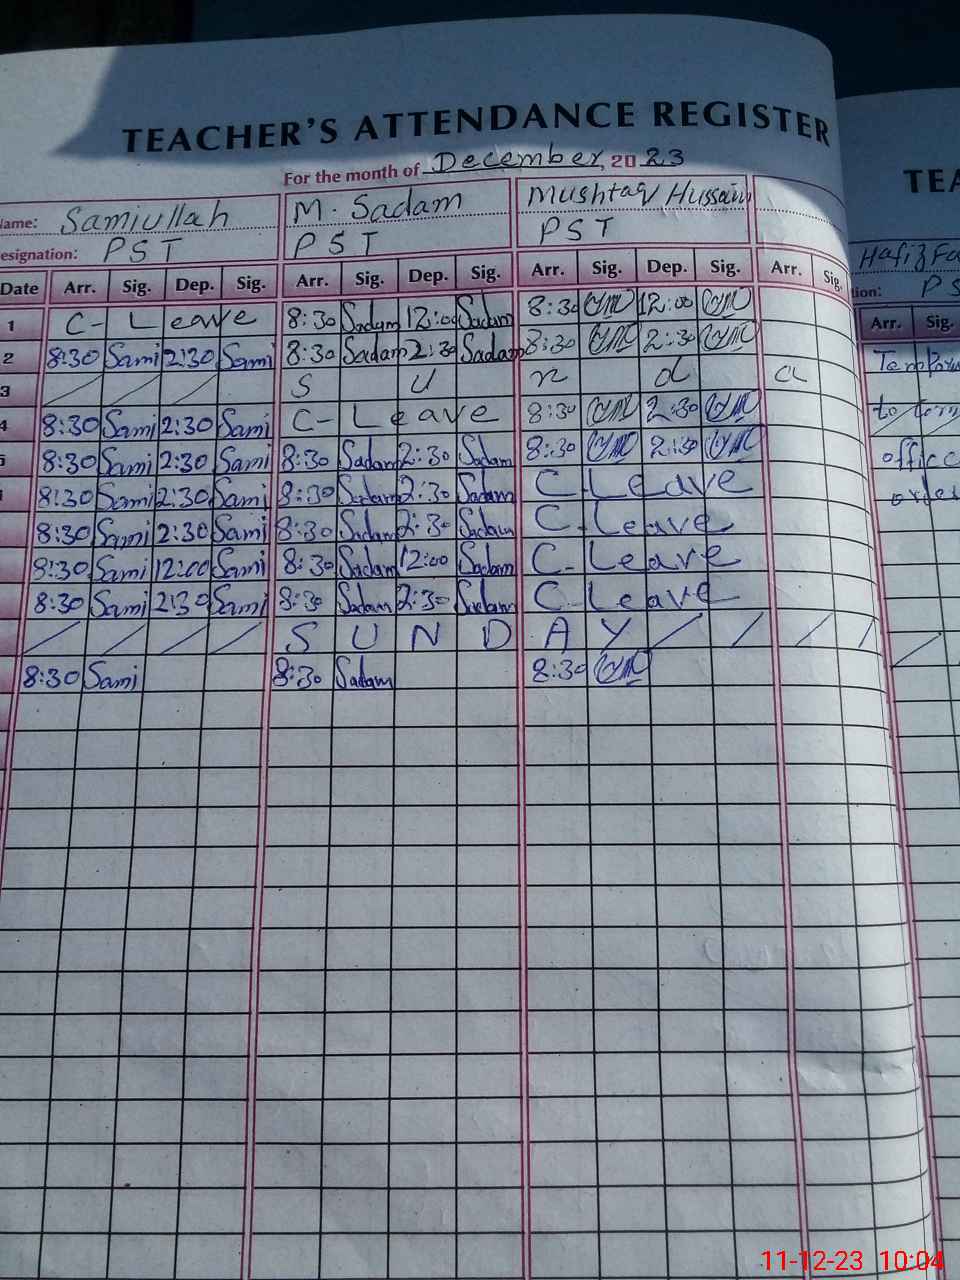 TEACHER'S ATTENDANCE REGISTER
For the month of December, 20 23
TEA
Name: Samiullah M. Sadam Mushtaq Hussain
Designation: PST PST PST
Hafiz Fa
tion: PS
Date Arr. Sig. Dep. Sig. Arr. Sig. Dep. Sig. Arr. Sig. Dep. Sig. Arr. Sig. Arr. Sig.
1 C-Leave 8:30 Sadam 12:00 Sadam 8:30 12:00
2 8:30 Sami 2:30 Sami 8:30 Sadam 2:30 Sadam 8:30 2:30
3 S u n d a
4 8:30 Sami 2:30 Sami C-Leave 8:30 2:30
5 8:30 Sami 2:30 Sami 8:30 Sadam 2:30 Sadam 8:30 2:30 office
8:30 Sami 2:30 Sami 8:30 Sadam 2:30 Sadam C-Leave
8:30 Sami 2:30 Sami 8:30 Sadam 2:30 Sadam C-Leave
8:30 Sami 12:00 Sami 8:30 Sadam 12:00 Sadam C-Leave
8:30 Sami 2:30 Sami 8:30 Sadam 2:30 Sadam C-Leave
S U N D A Y
8:30 Sami 8:30 Sadam 8:30
11-12-23 10:04